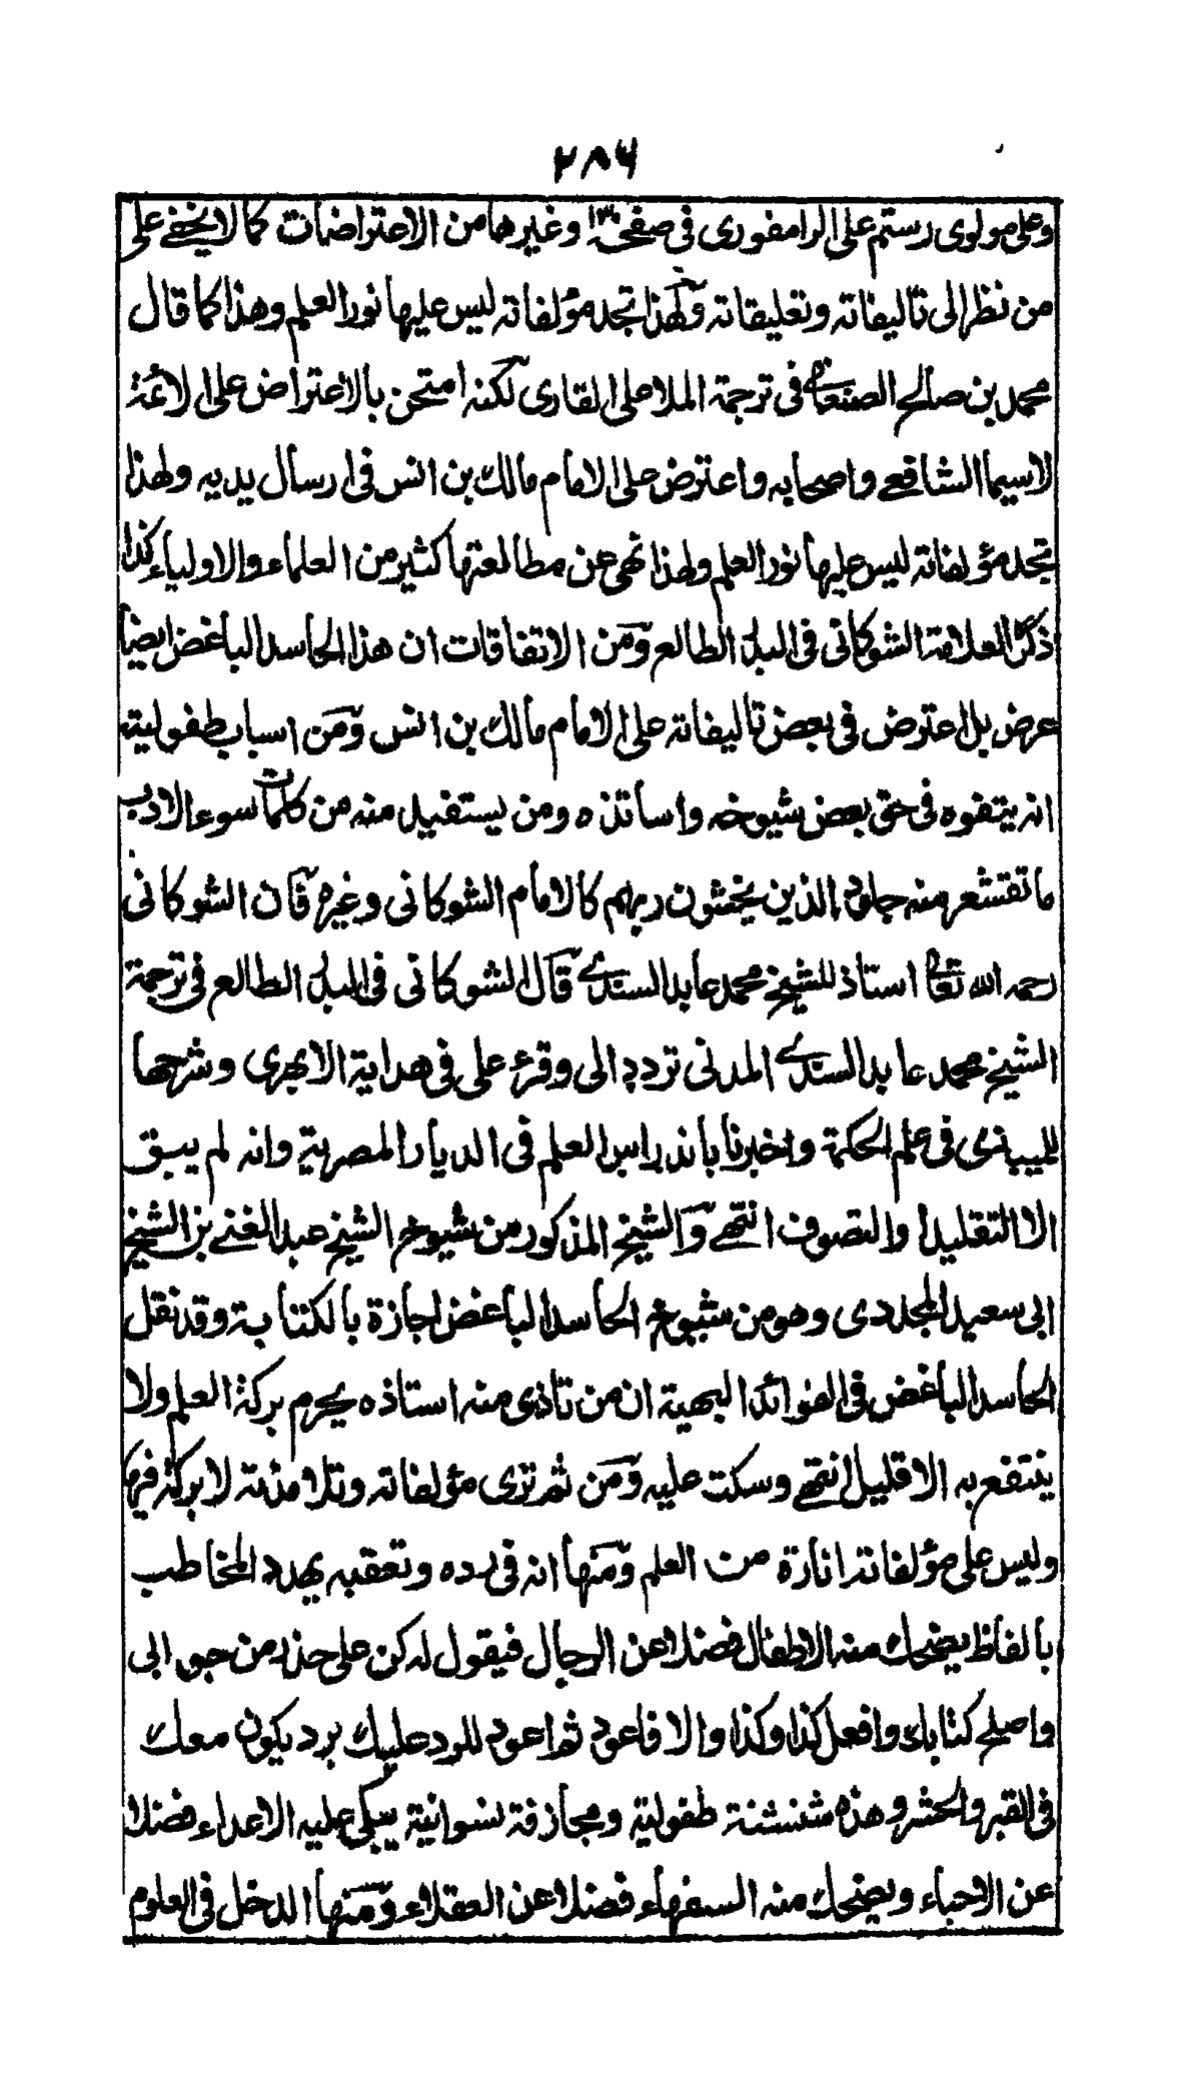 ٢٨٦
وعلى مولوى رستم على الرامفورى فى صفحة ١٣٠ وغيرها من الاعتراضات كما لا يخفى على
من نظر الى تاليفاته وتعليقاته ولهذا تجد مؤلفاته ليس عليها نور العلم وهذا كما قال
محمد بن صالح الصنعانى فى ترجمة الملا على القارى لكنه امتحن بالاعتراض على الائمة
لاسيما الشافعى واصحابه واعترض على الامام مالك بن انس فى ارسال يديه ولهذا
تجد مؤلفاته ليس عليها نور العلم ولهذا نهى عن مطالعتها كثير من العلماء والاولياء كذا
ذكره العلامة الشوكانى فى البدر الطالع ومن الاتفاقات ان هذا الحاسد الباغض ايضا
عرض بل اعترض فى بعض تاليفاته على الامام مالك بن انس ومن اسباب طفوليته
انه يتفوه فى حق بعض شيوخه واساتذه ومن يستفيد منه من كلمات سوء الادب
ما تقشعر منه جلود الذين يخشون ربهم كالامام الشوكانى وغيره فان الشوكانى
رحمه الله تعالى استاذ للشيخ محمد عابد السندى قال الشوكانى فى البدر الطالع فى ترجمة
الشيخ محمد عابد السندى المدنى تردد الى وقرء على فى هداية الابهرى وشرحها
للميبذى فى علم الحكمة واخبرنا باندراس العلم فى الديار المصرية وانه لم يبق
الا التقليد أو التصوف انتهى والشيخ المذكور من شيوخ الشيخ عبد الغنى بن الشيخ
ابى سعيد المجددى وهو من شيوخ الحاسد الباغض اجازة بالكتابة وقد نقل
الحاسد الباغض فى الفوائد البهية ان من تاذى منه استاذه يحرم بركة العلم ولا
ينتفع به الا قليل انتهى وسكت عليه ومن ثم ترى مؤلفاته وتلامذته لا بركة فيها
وليس على مؤلفاته انارة من العلم ومنها انه فى رده وتعقبه يهدد المخاطب
بالفاظ يضحك منه الاطفال فضلا عن الرجال فيقول له كن على حذر من جوابى
واصلح كتابك وافعل كذا وكذا والا فاعود ثم اعود للرد عليك برد يكون معك
فى القبر والحشر وهذه شنشنة طفولية ومجازفة نسوانية يبكى عليه الاعداء فضلا
عن الاحباء ويضحك منه السفهاء فضلا عن العقلاء ومنها الدخل فى العلوم